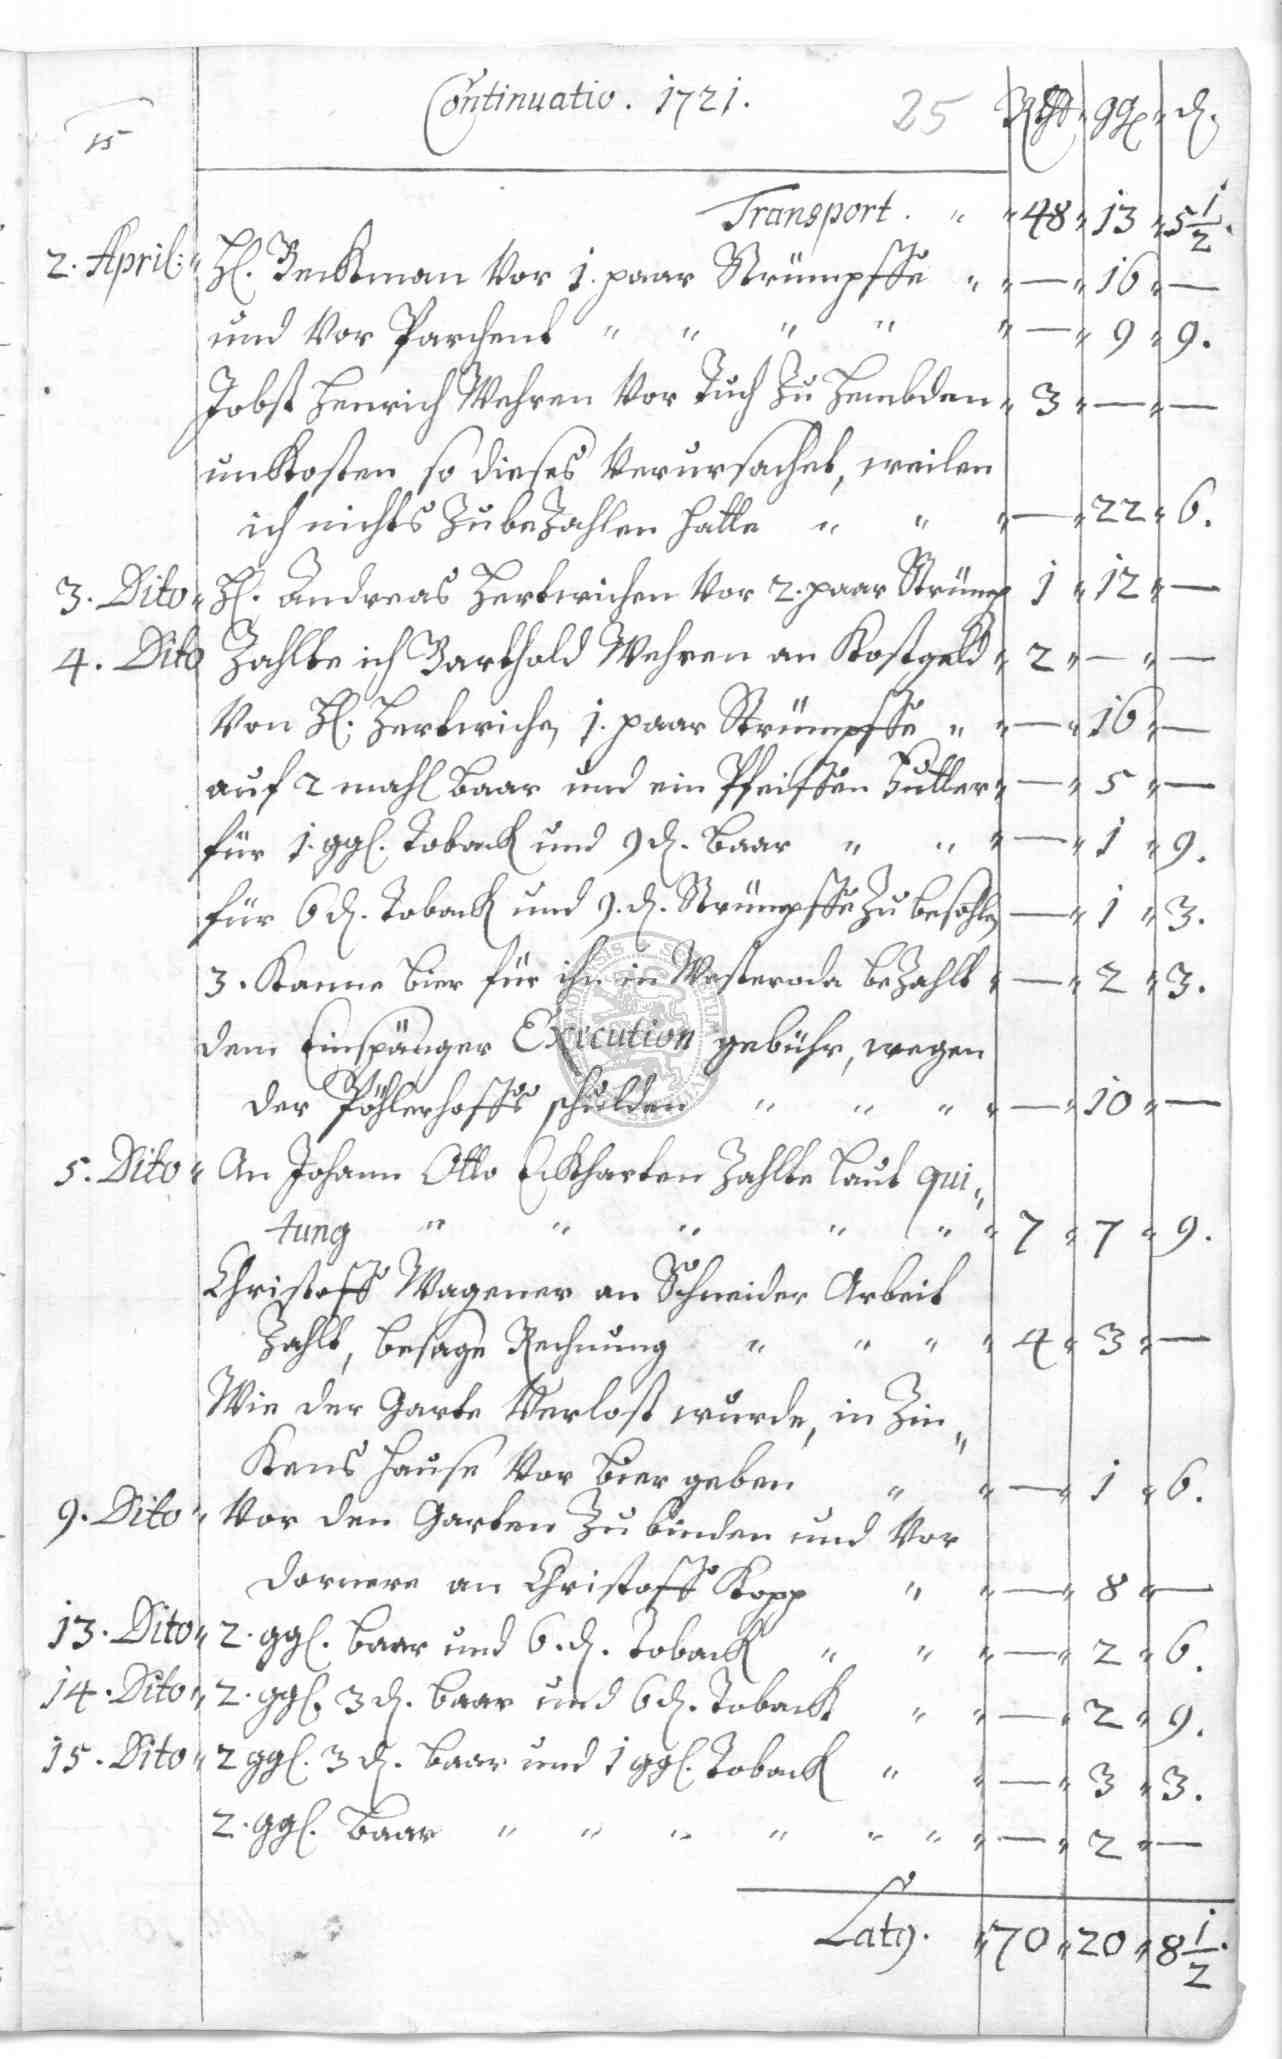 Continuatio. 1721. 25 Rthlr ggl. d.
15
Transport. " " 48 " 13 " 5 1/2.
2. April: " H. Beckman vor 1. paar Strümpffe " " — " 16 " —
und vor Parchent " " " " " — " 9 " 9.
Jobst Henrich Wehren vor Tuch zu Hembden " 3 " — " —
unkosten so dieses verursachet, weilen
ich nichts zubezahlen hatte " " " — " 22 " 6.
3. Dito " H. Andreas Hertwichen vor 2. paar Strümp 1 " 12 " —
4. Dito Zahlte ich Barthold Wehren an Kostgeld " 2 " — " —
von H. Hertwichen 1. paar Strümpffe " " — " 16 " —
auf 2 mahl baar und ein Pfeiffen Futter " — " 5 " —
für 1. ggl. Toback und 9 d. baar " " " — " 1 " 9.
für 6 d. Toback und 9. d. Strümpffe zu besohlen — " 1 " 3.
3. Kanne bier für ihn in Westeroda bezahlt " — " 2 " 3.
dem Einspänger Execution gebühr, wegen
der Pöhlerhoffs schulden " " " " — " 10 " —
5. Dito " An Johann Otto Eckharten zahlte laut qui"
tung " " " " " " 7 " 7 " 9.
Christoff Wagener an Schneider Arbeit
Zahlt, besage Rechnung " " " " 4 " 3 " —
Wie der Garte verlost wurde, in Zin"
kens Hause vor bier geben " " — " 1 " 6.
9. Dito " vor den Garten zu binden und vor
dornere an Christoff Kopp " " — " 8 " —
13. Dito " 2. ggl. baar und 6. d. Toback " " " — " 2 " 6.
14. Dito " 2. ggl. 3 d. baar und 6 d. Toback " " — " 2 " 9.
15. Dito " 2 ggl. 3 d. baar und 1 ggl. Toback " " — " 3 " 3.
2. ggl. baar " " " " " " " — " 2 " —
Lat9. " 70 " 20 " 8 1/2.